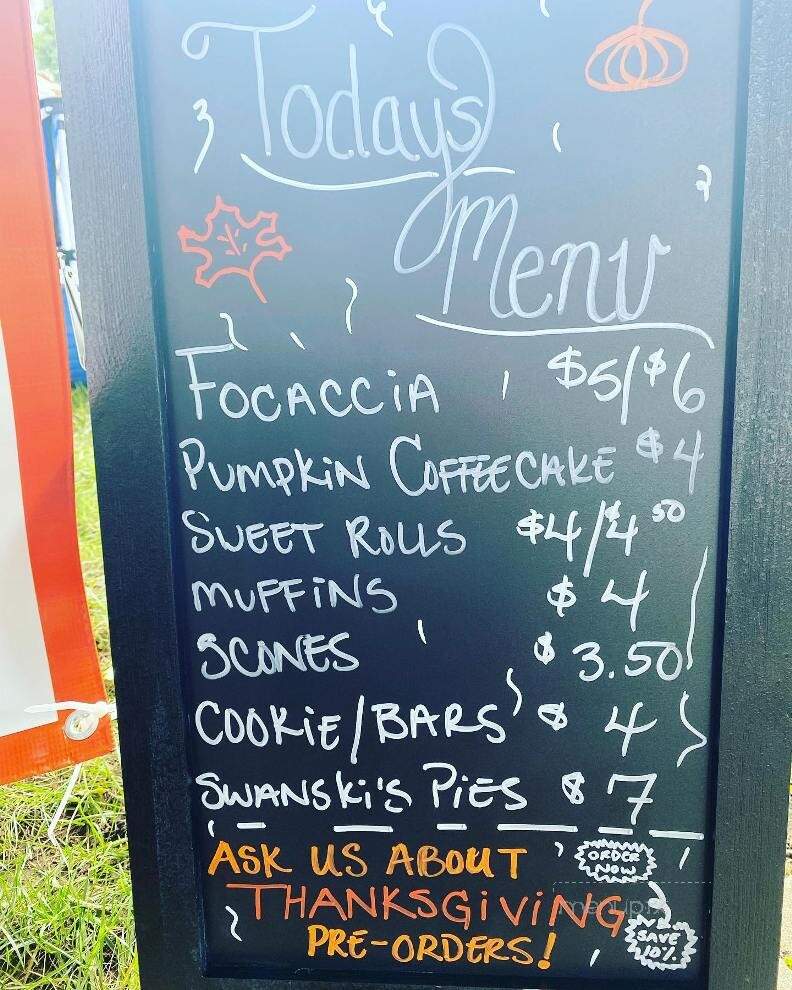 Todays
Menu
FOCACCIA $5/$6
PUMPKIN COFFEECAKE $4
SWEET ROLLS $4/$4.50
MUFFINS $4
SCONES $3.50
COOKIE/BARS $4
SWANSKI'S PIES $7
ASK US ABOUT
ORDER
NOW
THANKSGIVING
PRE-ORDERS!
SAVE
10%